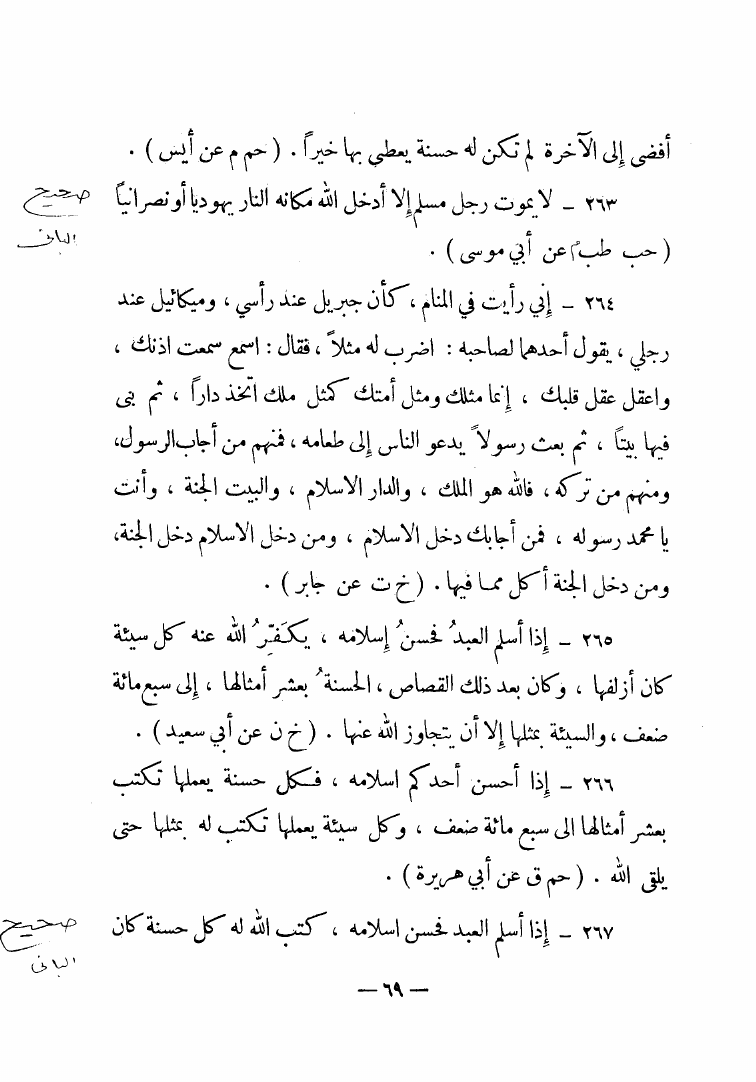 أفضى إلى الآخرة لم تكن له حسنة يعطى بها خيراً . ( حم م عن أيس ) .
٢٦٣ ـ لا يموت رجل مسلم إلا أدخل الله مكانه النار يهوديا أو نصرانياً
صحيح
الباني
( حب طب عن أبي موسى ) .
٢٦٤ ـ إني رأيت في المنام ، كأن جبريل عند رأسي ، وميكائيل عند
رجلي ، يقول أحدهما لصاحبه : اضرب له مثلاً ، فقال : اسمع سمعت اذنك ،
واعقل عقل قلبك ، إنما مثلك ومثل أمتك كمثل ملك اتخذ داراً ، ثم بنى
فيها بيتاً ، ثم بعث رسولاً يدعو الناس إلى طعامه ، فمنهم من أجاب الرسول،
ومنهم من تركه ، فالله هو الملك ، والدار الاسلام ، والبيت الجنة ، وأنت
يا محمد رسوله ، فمن أجابك دخل الاسلام ، ومن دخل الاسلام دخل الجنة،
ومن دخل الجنة أكل مما فيها . ( خ ت عن جابر ) .
٢٦٥ ـ إذا أسلم العبدُ فحسنُ إسلامه ، يكَفّرُ الله عنه كل سيئة
كان أزلفها ، وكان بعد ذلك القصاص ، الحسنةُ بعشر أمثالها ، إلى سبع مائة
ضعف ، والسيئة بمثلها إلا أن يتجاوز الله عنها . ( خ ن عن أبي سعيد ) .
٢٦٦ ـ إذا أحسن أحدكم اسلامه ، فكل حسنة يعملها تكتب
بعشر أمثالها الى سبع مائة ضعف ، وكل سيئة يعملها تكتب له بمثلها حتى
يلقى الله . ( حم ق عن أبي هريرة ) .
٢٦٧ ـ إذا أسلم العبد فحسن اسلامه ، كتب الله له كل حسنة كان
صحيح
الباني
— ٦٩ —